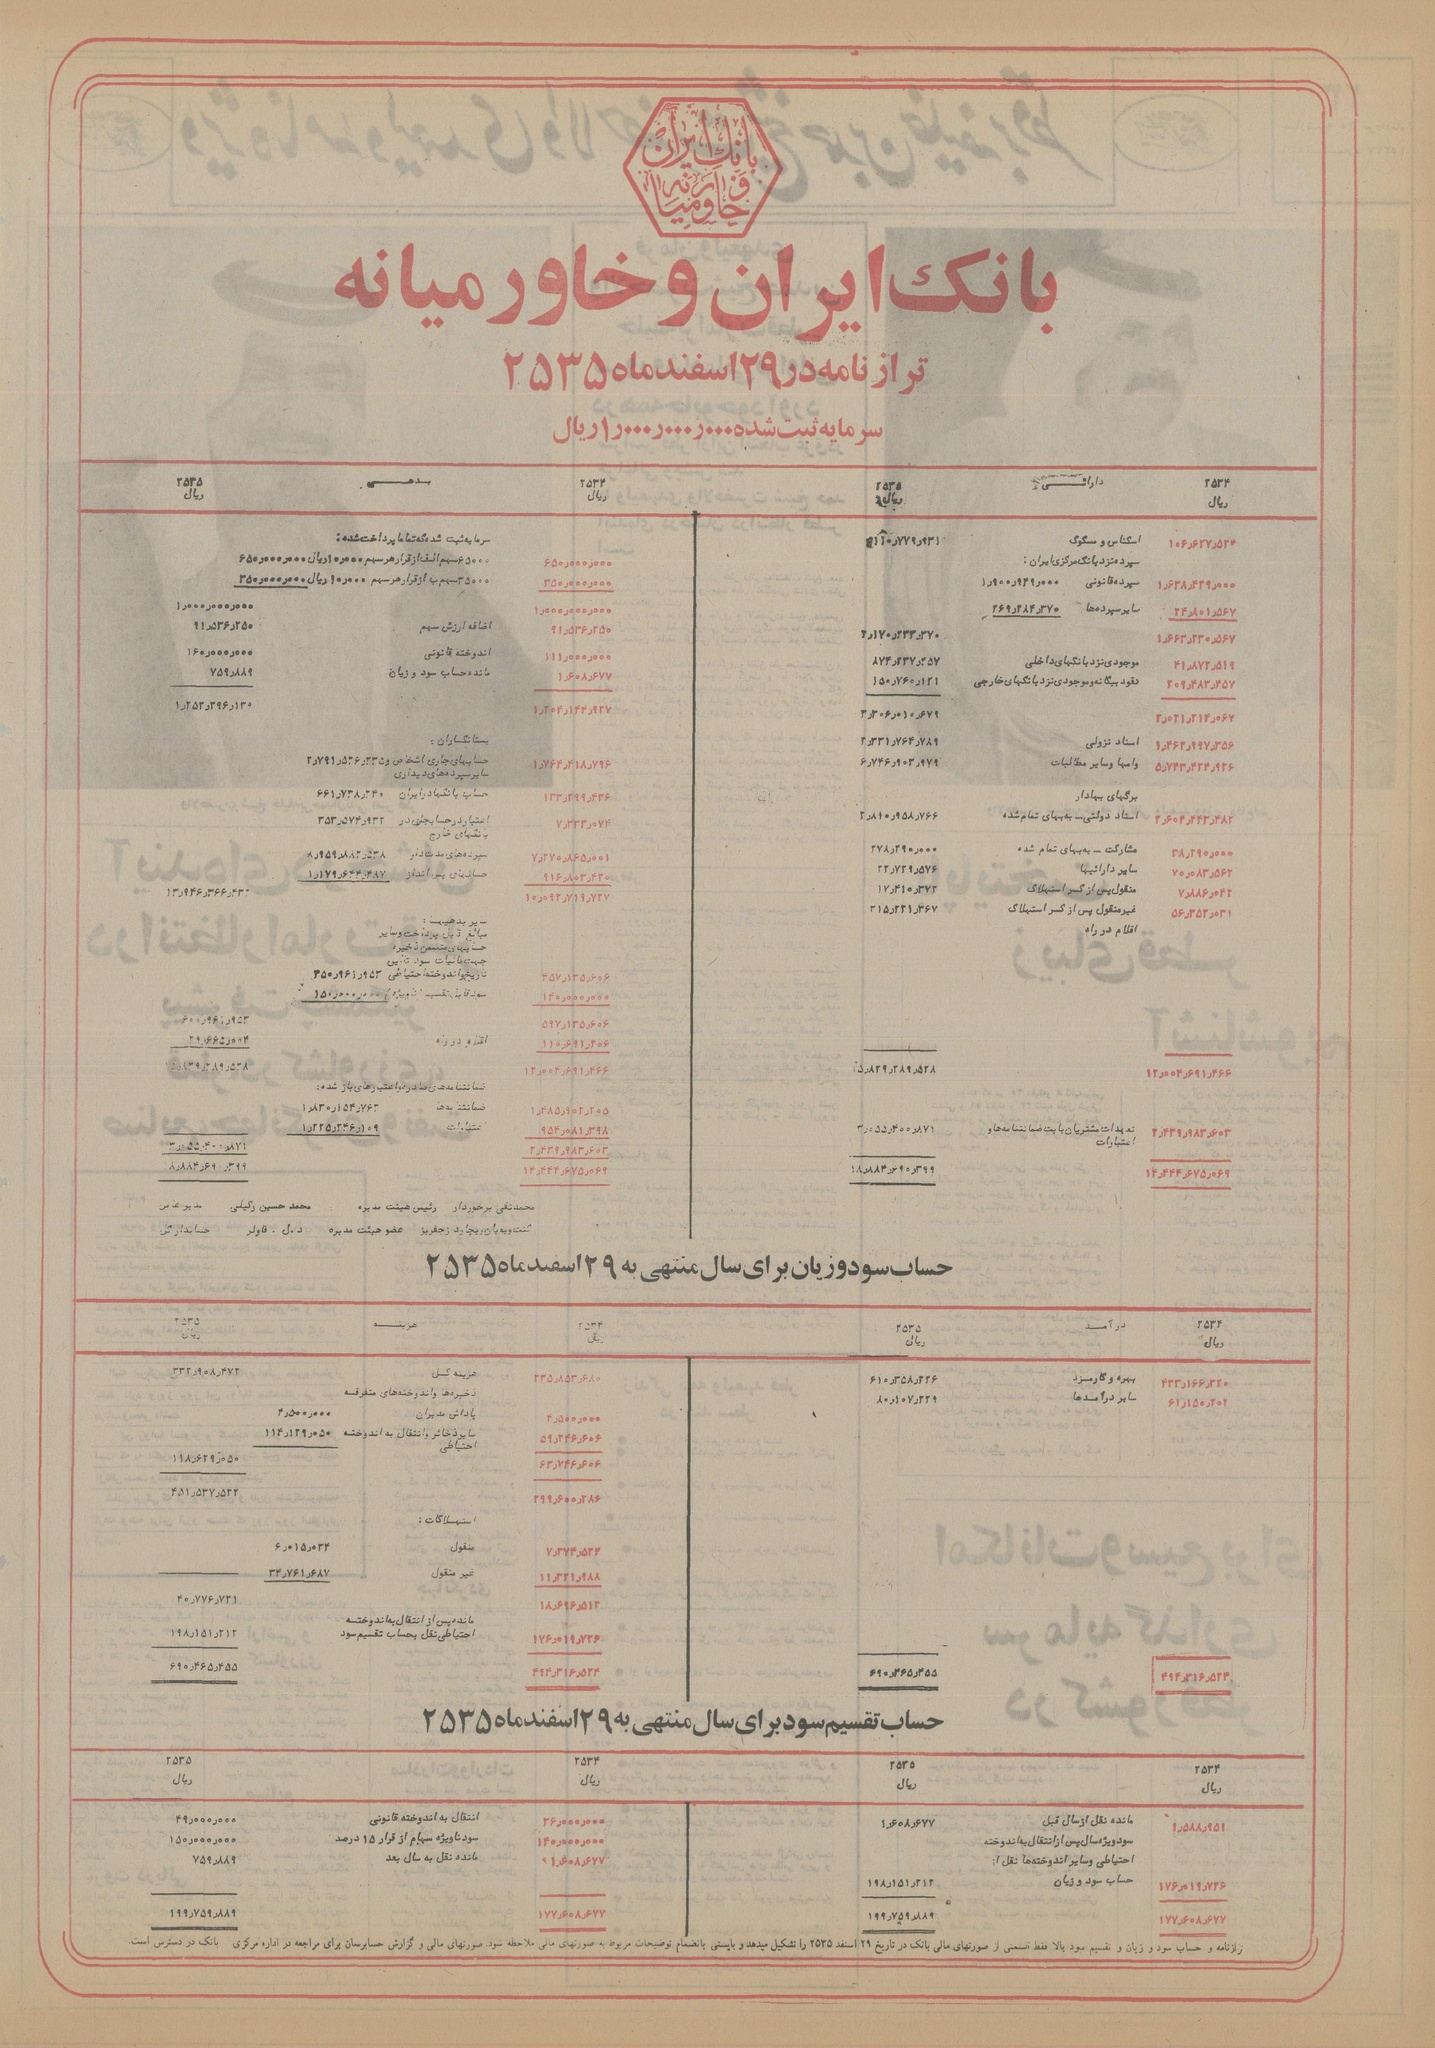 بانک ایران و خاورمیانه
بانک ایران و خاورمیانه
ترازنامه در ۲۹ اسفندماه ۲۵۳۵
سرمایه ثبت شده ۱٫۰۰۰٫۰۰۰٫۰۰۰ ریال
۲۵۳۴ دارائی ۲۵۳۵
ریال ریال
اسکناس و مسکوک
۱۰۶٫۶۲۷٫۵۲۴
سپرده نزد بانک مرکزی ایران :
۱٫۶۳۸٫۴۲۹٫۰۰۰ سپرده قانونی ۱٫۹۰۰٫۹۴۹٫۰۰۰
۲۴٫۸۰۱٫۵۶۷ سایر سپرده‌ها ۲۶۹٫۲۸۴٫۳۷۰
۱٫۶۶۳٫۲۳۰٫۵۶۷ ۲٫۱۷۰٫۲۳۳٫۳۷۰
۴۱٫۸۷۲٫۵۱۹ موجودی نزد بانکهای داخلی ۸۷۴٫۲۳۷٫۲۵۷
۲۰۹٫۴۸۳٫۴۵۷ نقود بیگانه و موجودی نزد بانکهای خارجی ۱۵۰٫۷۶۰٫۱۲۱
۲٫۰۲۱٫۲۱۴٫۰۶۷ ۳٫۳۰۶٫۰۱۰٫۶۷۹
۱٫۴۶۲٫۹۹۷٫۳۵۶ اسناد نزولی ۲٫۳۳۱٫۷۶۴٫۷۸۹
۵٫۷۴۳٫۴۲۴٫۹۲۶ وامها و سایر مطالبات ۶٫۷۴۶٫۹۰۳٫۹۷۹
برگهای بهادار
۲٫۶۰۴٫۴۴۳٫۴۸۲ اسناد دولتی ــ به بهای تمام شده
۳۸٫۲۹۰٫۰۰۰ مشارکت ــ به بهای تمام شده ۲۷۸٫۲۹۰٫۰۰۰
۷۰٫۰۸۳٫۵۶۲ سایر دارائیها ۲۲٫۷۲۹٫۵۷۶
۷٫۸۸۶٫۰۴۲ منقول پس از کسر استهلاک ۱۷٫۴۱۰٫۳۷۲
۵۶٫۳۵۲٫۰۳۱ غیرمنقول پس از کسر استهلاک ۳۱۵٫۲۲۱٫۳۶۷
اقلام در راه
۱۲٫۰۰۴٫۶۹۱٫۴۶۶ ۱۵٫۸۲۹٫۲۸۹٫۵۲۸
۲٫۴۳۹٫۹۸۳٫۶۰۳ تعهدات مشتریان بابت ضمانتنامه‌ها و ۳٫۰۵۵٫۴۰۰٫۸۷۱
اعتبارات
۱۴٫۴۴۴٫۶۷۵٫۰۶۹ ۱۸٫۸۸۴٫۶۹۰٫۳۹۹
۲۵۳۴ بدهی ۲۵۳۵
ریال ریال
سرمایه ثبت شده که تماما پرداخت شده :
۶۵۰٫۰۰۰٫۰۰۰ ۶۵۰۰۰ سهم الف از قرار هر سهم ۱۰٫۰۰۰ ریال ۶۵۰٫۰۰۰٫۰۰۰
۳۵۰٫۰۰۰٫۰۰۰ ۳۵۰۰۰ سهم ب از قرار هر سهم ۱۰٫۰۰۰ ریال ۳۵۰٫۰۰۰٫۰۰۰
۱٫۰۰۰٫۰۰۰٫۰۰۰ ۱٫۰۰۰٫۰۰۰٫۰۰۰
۹۱٫۵۳۶٫۲۵۰ اضافه ارزش سهم ۹۱٫۵۳۶٫۲۵۰
۱۱۱٫۰۰۰٫۰۰۰ اندوخته قانونی ۱۶۰٫۰۰۰٫۰۰۰
۱٫۶۰۸٫۶۷۷ مانده حساب سود و زیان ۷۵۹٫۸۸۹
۱٫۲۰۴٫۱۴۴٫۹۲۷
بستانکاران :
۱٫۷۶۴٫۴۱۸٫۷۹۶ حسابهای جاری اشخاص و ۲٫۷۹۱٫۵۲۶٫۲۳۵
سایر سپرده‌های دیداری
۱۳۳٫۲۹۹٫۴۳۶ حساب بانکها در ایران
۷٫۳۳۳٫۰۷۴ اعتبار در حساب جاری در ۳۵۳٫۵۷۴٫۹۳۲
بانکهای خارج
۷٫۲۷۰٫۸۶۵٫۰۰۱ سپرده‌های مدت‌دار ۸٫۹۵۹٫۸۸۲٫۵۳۸
۹۱۶٫۸۰۳٫۴۲۰ حسابهای پس انداز ۱٫۱۷۹٫۶۴۴٫۴۸۷
۱۰٫۰۹۲٫۷۱۹٫۷۲۷ ۱۳٫۹۴۶٫۳۶۶٫۴۳۲
سایر بدهیها :
مبالغ قابل پرداخت و سایر
حسابهای متضمن ذخیره
۴۵۷٫۱۳۵٫۶۰۶ ۴۵۰٫۹۶۱٫۹۵۳
۱۴۰٫۰۰۰٫۰۰۰ ۱۵۰٫۰۰۰٫۰۰۰
۵۹۷٫۱۳۵٫۶۰۶ ۶۰۰٫۹۶۱٫۹۵۳
۱۱۰٫۶۹۱٫۲۰۶ اقلام در راه ۲۹٫۶۶۵٫۰۰۴
۱۲٫۰۰۴٫۶۹۱٫۴۶۶
ضمانتنامه‌های صادره و اعتبارهای باز شده :
۱٫۴۸۵٫۹۰۲٫۲۰۵ ضمانتنامه‌ها ۱٫۸۳۰٫۱۵۴٫۷۶۲
۹۵۴٫۰۸۱٫۳۹۸ اعتبارات ۱٫۲۲۵٫۲۴۶٫۱۰۹
۲٫۴۳۹٫۹۸۳٫۶۰۳ ۳٫۰۵۵٫۴۰۰٫۸۷۱
۱۴٫۴۴۴٫۶۷۵٫۰۶۹
محمدتقی برخوردار رئیس هیئت مدیره محمد حسین وکیلی مدیر عامل
عضو هیئت مدیره د. ل. فاولر حسابدار کل
حساب سود و زیان برای سال منتهی به ۲۹ اسفندماه ۲۵۳۵
۲۵۳۴ درآمد ۲۵۳۵
ریال ریال
۴۳۳٫۱۶۶٫۳۲۰ بهره و کارمزد ۶۱۰٫۳۵۸٫۲۲۶
۶۱٫۱۵۰٫۲۰۴ سایر درآمدها ۸۰٫۱۰۷٫۲۲۹
۴۹۴٫۳۱۶٫۵۲۴ ۶۹۰٫۴۶۵٫۴۵۵
۲۵۳۴ هزینه ۲۵۳۵
ریال ریال
۲۳۵٫۸۵۳٫۶۸۰ هزینه کل ۳۳۲٫۹۰۸٫۴۷۲
ذخیره‌ها و اندوخته‌های متفرقه
۴٫۵۰۰٫۰۰۰ پاداش مدیران ۴٫۵۰۰٫۰۰۰
۵۹٫۲۴۶٫۶۰۶ سایر ذخائر و انتقال به اندوخته ۱۱۴٫۱۲۹٫۰۵۰
احتیاطی
۶۳٫۷۴۶٫۶۰۶ ۱۱۸٫۶۲۹٫۰۵۰
۲۹۹٫۶۰۰٫۲۸۶ ۴۵۱٫۵۳۷٫۵۲۲
استهلاکات :
۷٫۳۷۴٫۵۲۴ منقول ۶٫۰۱۵٫۰۳۴
۱۱٫۳۲۱٫۹۸۸ غیر منقول ۳۴٫۷۶۱٫۶۸۷
۱۸٫۶۹۶٫۵۱۲ ۴۰٫۷۷۶٫۷۲۱
مانده پس از انتقال به اندوخته
۱۷۶٫۰۱۹٫۷۲۶ احتیاطی نقل بحساب تقسیم سود ۱۹۸٫۱۵۱٫۲۱۲
۴۹۴٫۳۱۶٫۵۲۴ ۶۹۰٫۴۶۵٫۴۵۵
حساب تقسیم سود برای سال منتهی به ۲۹ اسفندماه ۲۵۳۵
۲۵۳۴ ۲۵۳۵
ریال ریال
۱٫۵۸۸٫۹۵۱ مانده نقل از سال قبل ۱٫۶۰۸٫۶۷۷
سود ویژه سال پس از انتقال به اندوخته
احتیاطی و سایر اندوخته‌ها نقل از
۱۷۶٫۰۱۹٫۷۲۶ حساب سود و زیان ۱۹۸٫۱۵۱٫۲۱۲
۱۷۷٫۶۰۸٫۶۷۷ ۱۹۹٫۷۵۹٫۸۸۹
۲۵۳۴ ۲۵۳۵
ریال ریال
۳۶٫۰۰۰٫۰۰۰ انتقال به اندوخته قانونی ۴۹٫۰۰۰٫۰۰۰
۱۴۰٫۰۰۰٫۰۰۰ سود ناویژه سهام از قرار ۱۵ درصد ۱۵۰٫۰۰۰٫۰۰۰
۱٫۶۰۸٫۶۷۷ مانده نقل به سال بعد ۷۵۹٫۸۸۹
۱۷۷٫۶۰۸٫۶۷۷ ۱۹۹٫۷۵۹٫۸۸۹
ترازنامه و حساب سود و زیان و تقسیم سود بالا فقط قسمتی از صورتهای مالی بانک در تاریخ ۲۹ اسفند ۲۵۳۵ را تشکیل میدهد و بایستی بانضمام توضیحات مربوط به صورتهای مالی ملاحظه شود. صورتهای مالی و گزارش حسابرسان برای مراجعه در اداره مرکزی بانک در دسترس است.